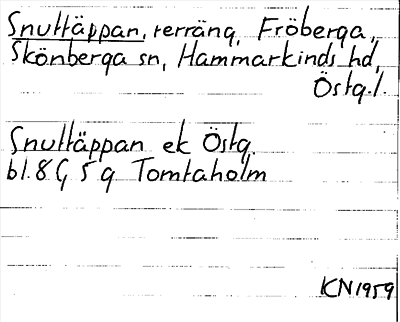 Snuttäppan, terräng, Fröberga,
Skönberga sn, Hammarkinds hd,
Östg.l.
Snuttäppan ek Östg.
bl. 8G 5g Tomtaholm
KN 1959